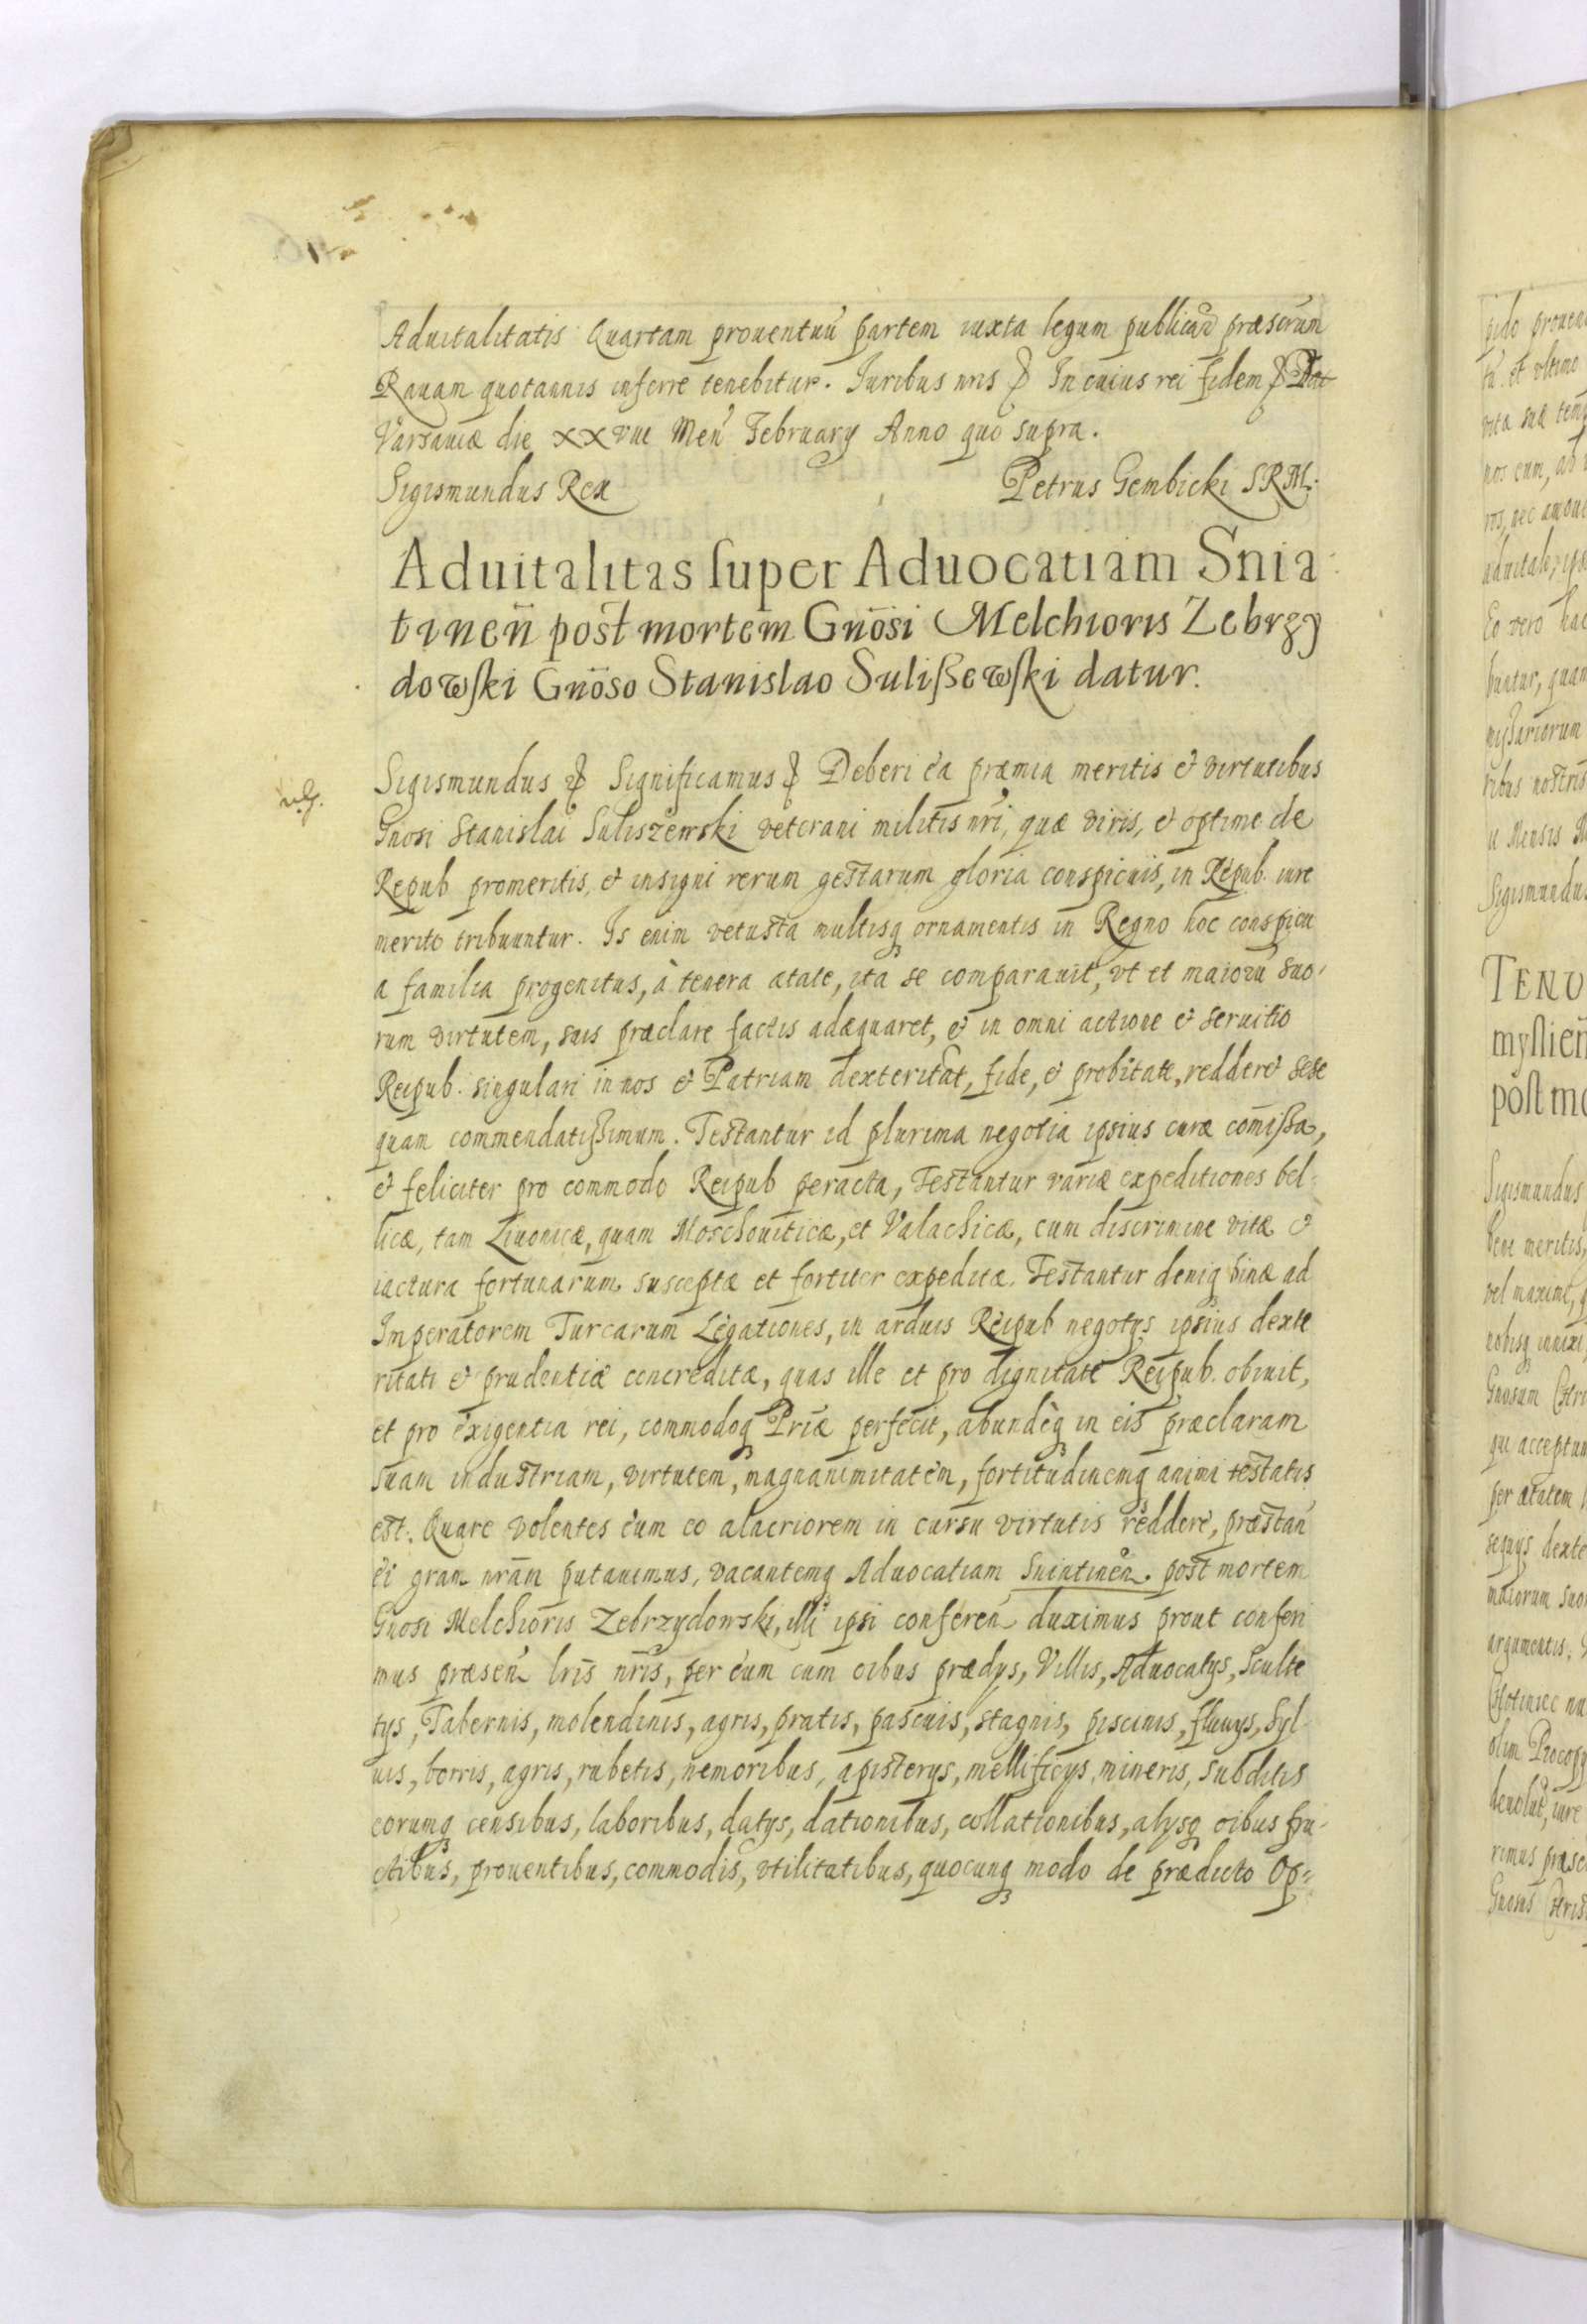 Aduitalitatis Quartam prouentuũ partem iuxta legum publicar̃ præscrum
Rauam quotannis inferre tenebitur. Iuribus nris & In cuius rei fidem & Dat
Varsauiæ die XXVIII Men̄ February Anno quo supra.
Sigismundus Rex Petrus Gembicki SRM.
Aduitalitas ſuper Aduocatiam Snia
tinen̄ post mortem Gnōsi Melchioris Zebrzy
dowſki Gnōso Stanislao Suliſsewſki datur.
Sigismundus & Significamus & Deberi ea præmia meritis & virtutibus
Gnosi Stanislai Suliszewski veterani militis nr̄i, quæ viris, & optime de
Repub promeritis, & insigni rerum gestarum gloria conspicuis, in Repub. iure
merito tribuuntur. Is enim vetusta multisq ornamentis in Regno hoc conspicu
a familia progenitus, à tenera ætate, ita se comparauit, vt et maiorũ suo,
rum virtutem, suis præclare factis adæquaret, & in omni actione & seruitio
Reipub. singulari in nos & Patriam dexteritat, fide, & probitate, redderet sese
quam commendatiſsimum. Testantur id plurima negotia ipsius curæ com̄iſsa,
& feliciter pro commodo Reipub peracta, Testantur variæ expeditiones bel=
licæ, tam Liuonicæ, quam Moschouiticæ, et Valachicæ, cum discrimine vitæ &
iactura fortunarum susceptæ et fortiter expeditæ. Testantur deniq binæ ad
Imperatorem Turcarum Legationes, in arduis Reipub negotys ipsius dexte
ritati & prudentiæ concreditæ, quas ille et pro dignitate Reipub. obiuit,
et pro exigentia rei, commodoq Priæ perfecit, abundeq in eis præclaram
suam industriam, virtutem, magnanimitatem, fortitudinemq animi testatus
est. Quare volentes eum eo alacriorem in cursu virtutis reddere, præstan̄
ei gram nrām putauimus, vacantemq Aduocatiam Sniatinen̄. post mortem
Gnosi Melchioris Zebrzydowski, illi ipsi conferen̄ duximus prout conferi
mus præsen̄ lr̄is nr̄is, per eum cum oībus prædys, Villis, Aduocatys, Sculte
tys, Tabernis, molendinis, agris, pratis, pascuis, stagnis, piscinis, fluuys, Syl
uis, borris, agris, rubetis, nemoribus, apisterys, mellificys, mineris, subditis
eorumq censibus, laboribus, datys, dationibus, collationibus, alysq oībus fru-
ctibus, prouentibus, commodis, vtilitatibus, quocunq modo de prædicto Op=